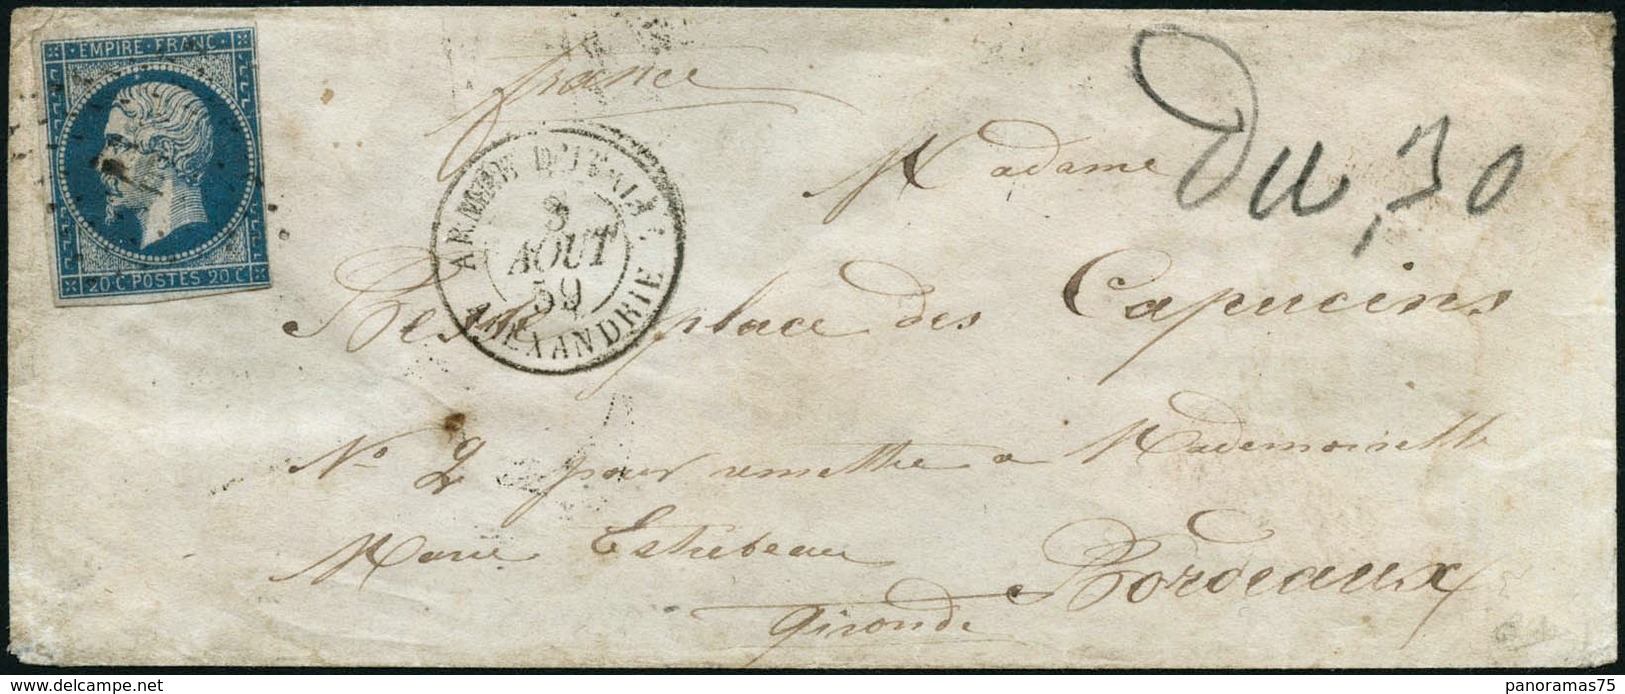 EMPIRE FRANC
20 C POSTES 20 C
france
ARMEE D'ITALIE
8
AOUT
59
ALEXANDRIE
Du 30
Madame
place des Capucins
No 2 pour remettre a Mademoiselle
Marie Estrebeau
Bordeaux
Gironde
delcampe.net
panoramas75